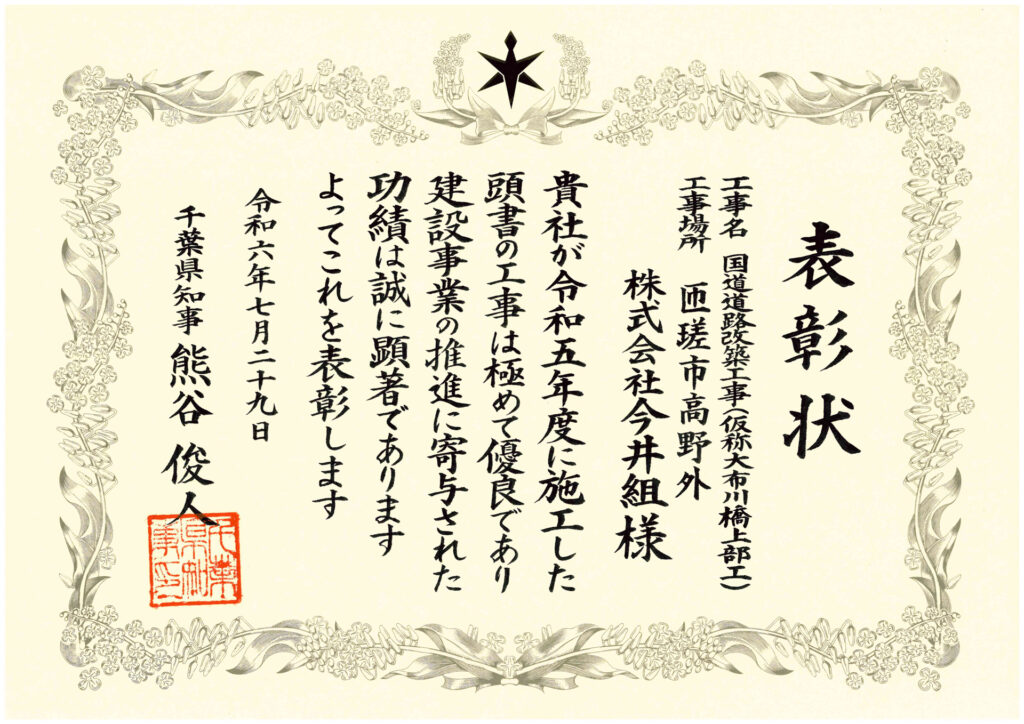 表彰状
工事名 国道道路改築工事(仮称大布川橋上部工)
工事場所 匝瑳市高野外
株式会社今井組様
貴社が令和五年度に施工した
頭書の工事は極めて優良であり
建設事業の推進に寄与された
功績は誠に顕著であります
よってこれを表彰します
令和六年七月二十九日
千葉県知事 熊谷俊人
千葉
県知
事印